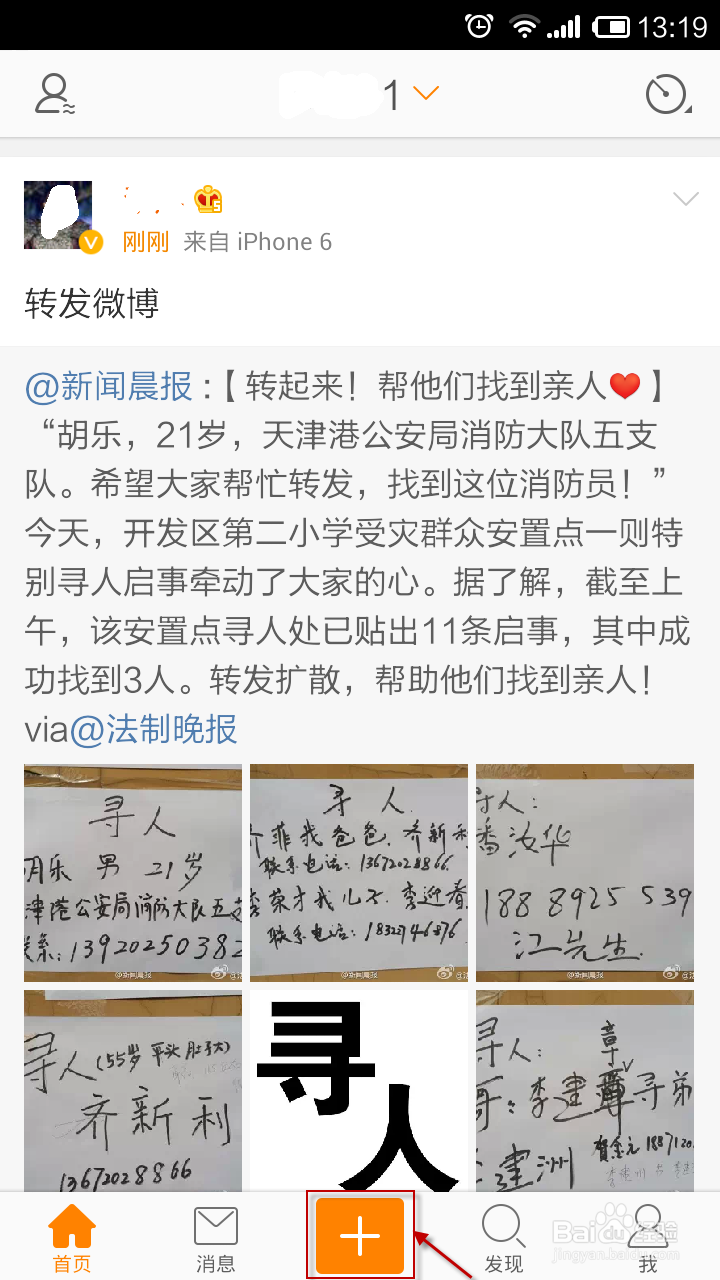 13:19
1
5
刚刚 来自 iPhone 6
转发微博
@新闻晨报 :【 转起来！帮他们找到亲人❤】
“胡乐，21岁，天津港公安局消防大队五支
队。希望大家帮忙转发，找到这位消防员！”
今天，开发区第二小学受灾群众安置点一则特
别寻人启事牵动了大家的心。据了解，截至上
午，该安置点寻人处已贴出11条启事，其中成
功找到3人。转发扩散，帮助他们找到亲人！
via@法制晚报
寻人
胡乐 男 21岁
津港公安局消防大队五支
联系:13920250382
@新闻晨报
寻 人
齐菲我爸爸.齐新利
联系电话:13672028866.
荣才我儿子.李迎春
联系电话:
@新闻晨报
寻人:
潘汝华
188 8925 539
江先生.
@新闻晨报
寻人(55岁 平头 肚子大)
齐新利
13672028866
寻人
寻人:
哥:李建 寻弟
建洲
首页
消息
发现
我
Baidu经验
jingyan.baidu.com